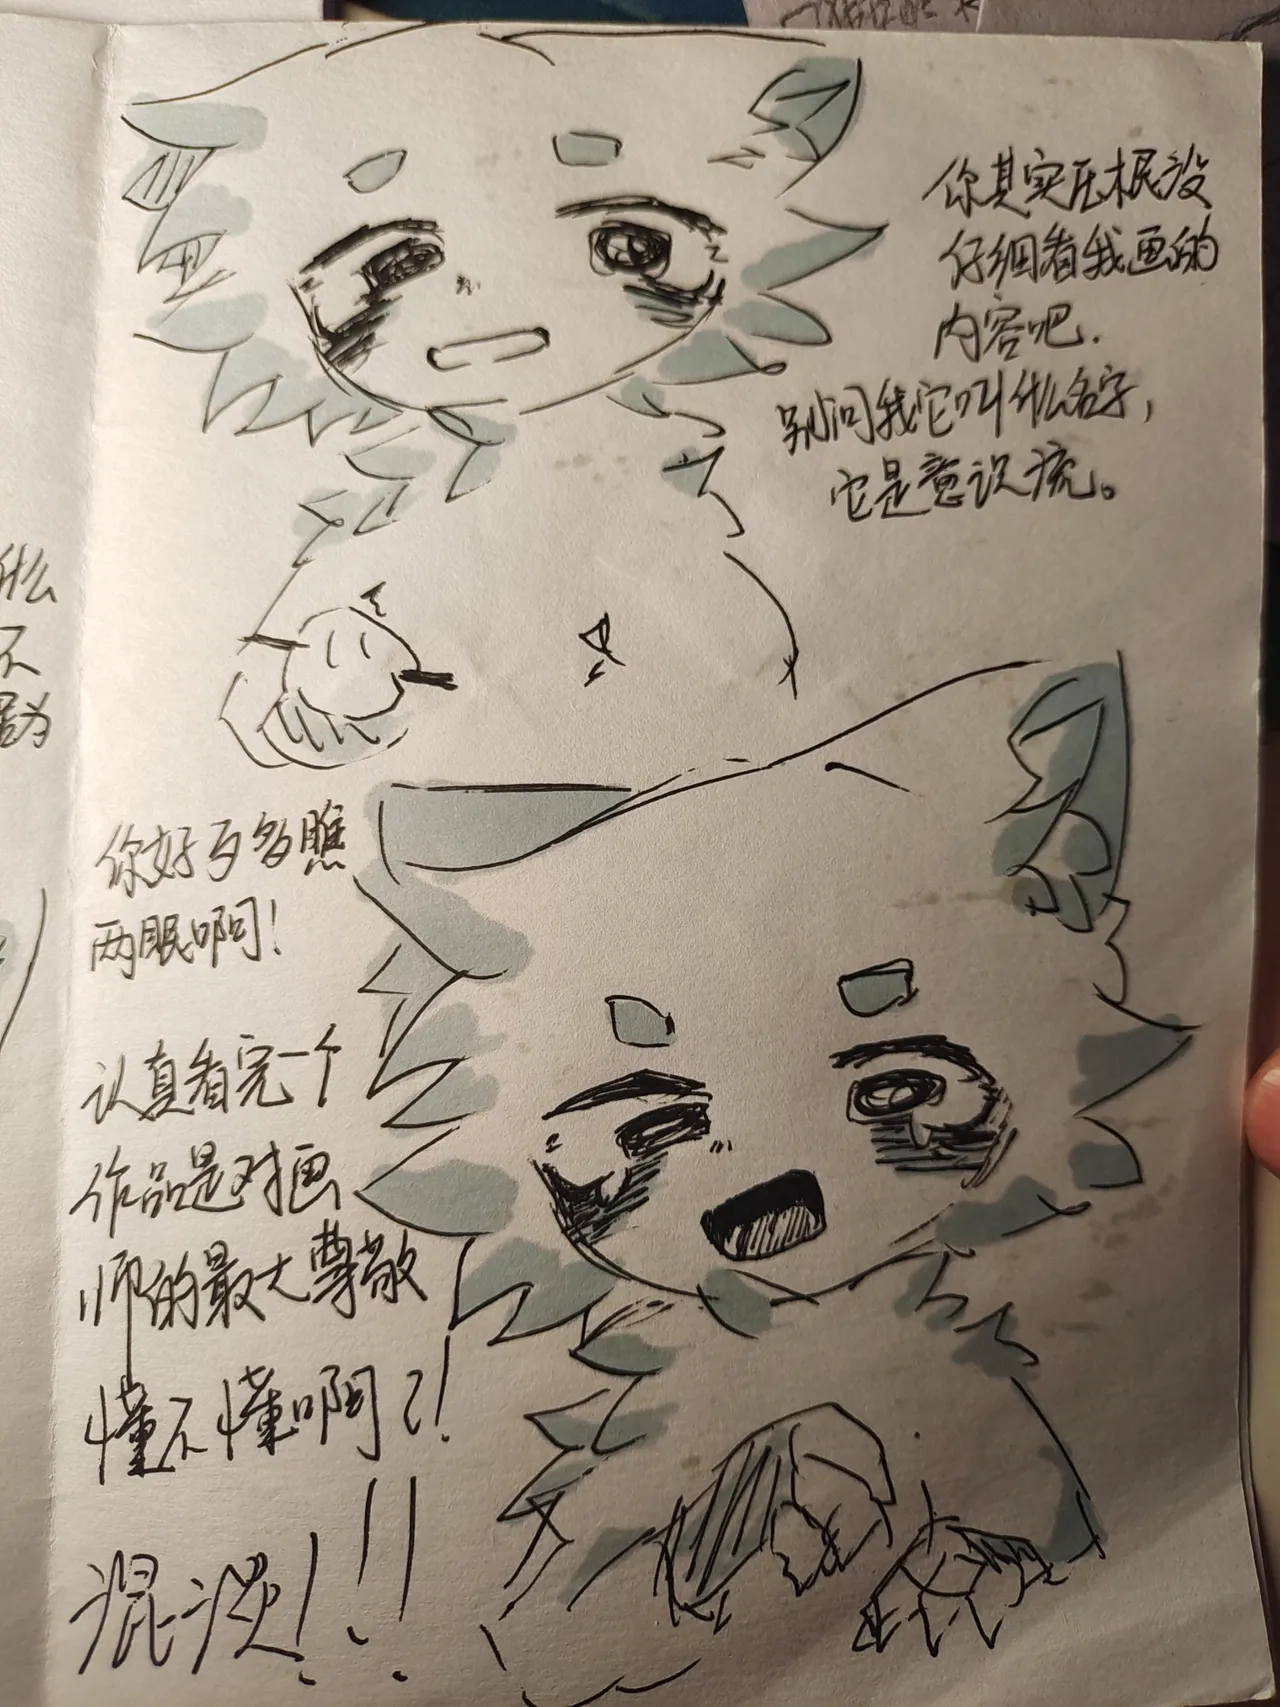 你其实压根没
仔细看我画的
内容吧.
别问我它叫什么名字,
它是意识流。
你好歹多瞧
两眼啊!
认真看完一个
作品是对画
师的最大尊敬
懂不懂啊?!
混淡!!!
什么
不